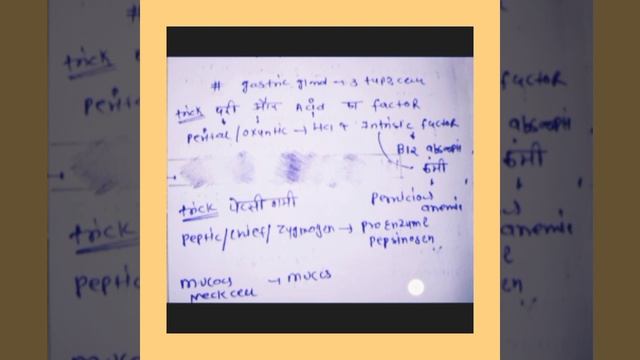 # gastric gland → 3 type cell
trick परी और Acid का factor
Perital/oxyntic → Hcl + Intrisic factor
B12 absorp
कमी
Pernicious
anemia
trick
Peptic/chief/Zygmogen → ProEnzyme
Pepsinogen
mucous → mucus
Neck cell